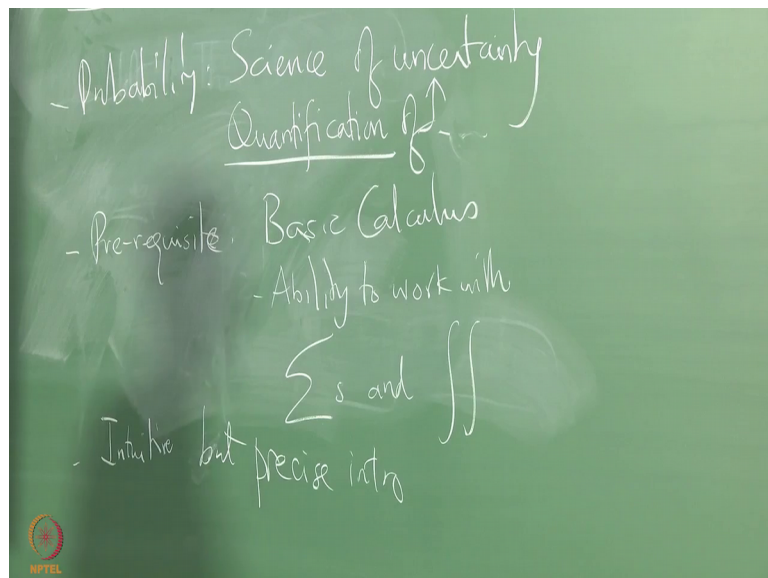 - Probability: Science of uncertainty
Quantification of
- Pre-requisite. Basic Calculus
- Ability to work with
∑s and ∬
- Intuitive but precise intro
NPTEL